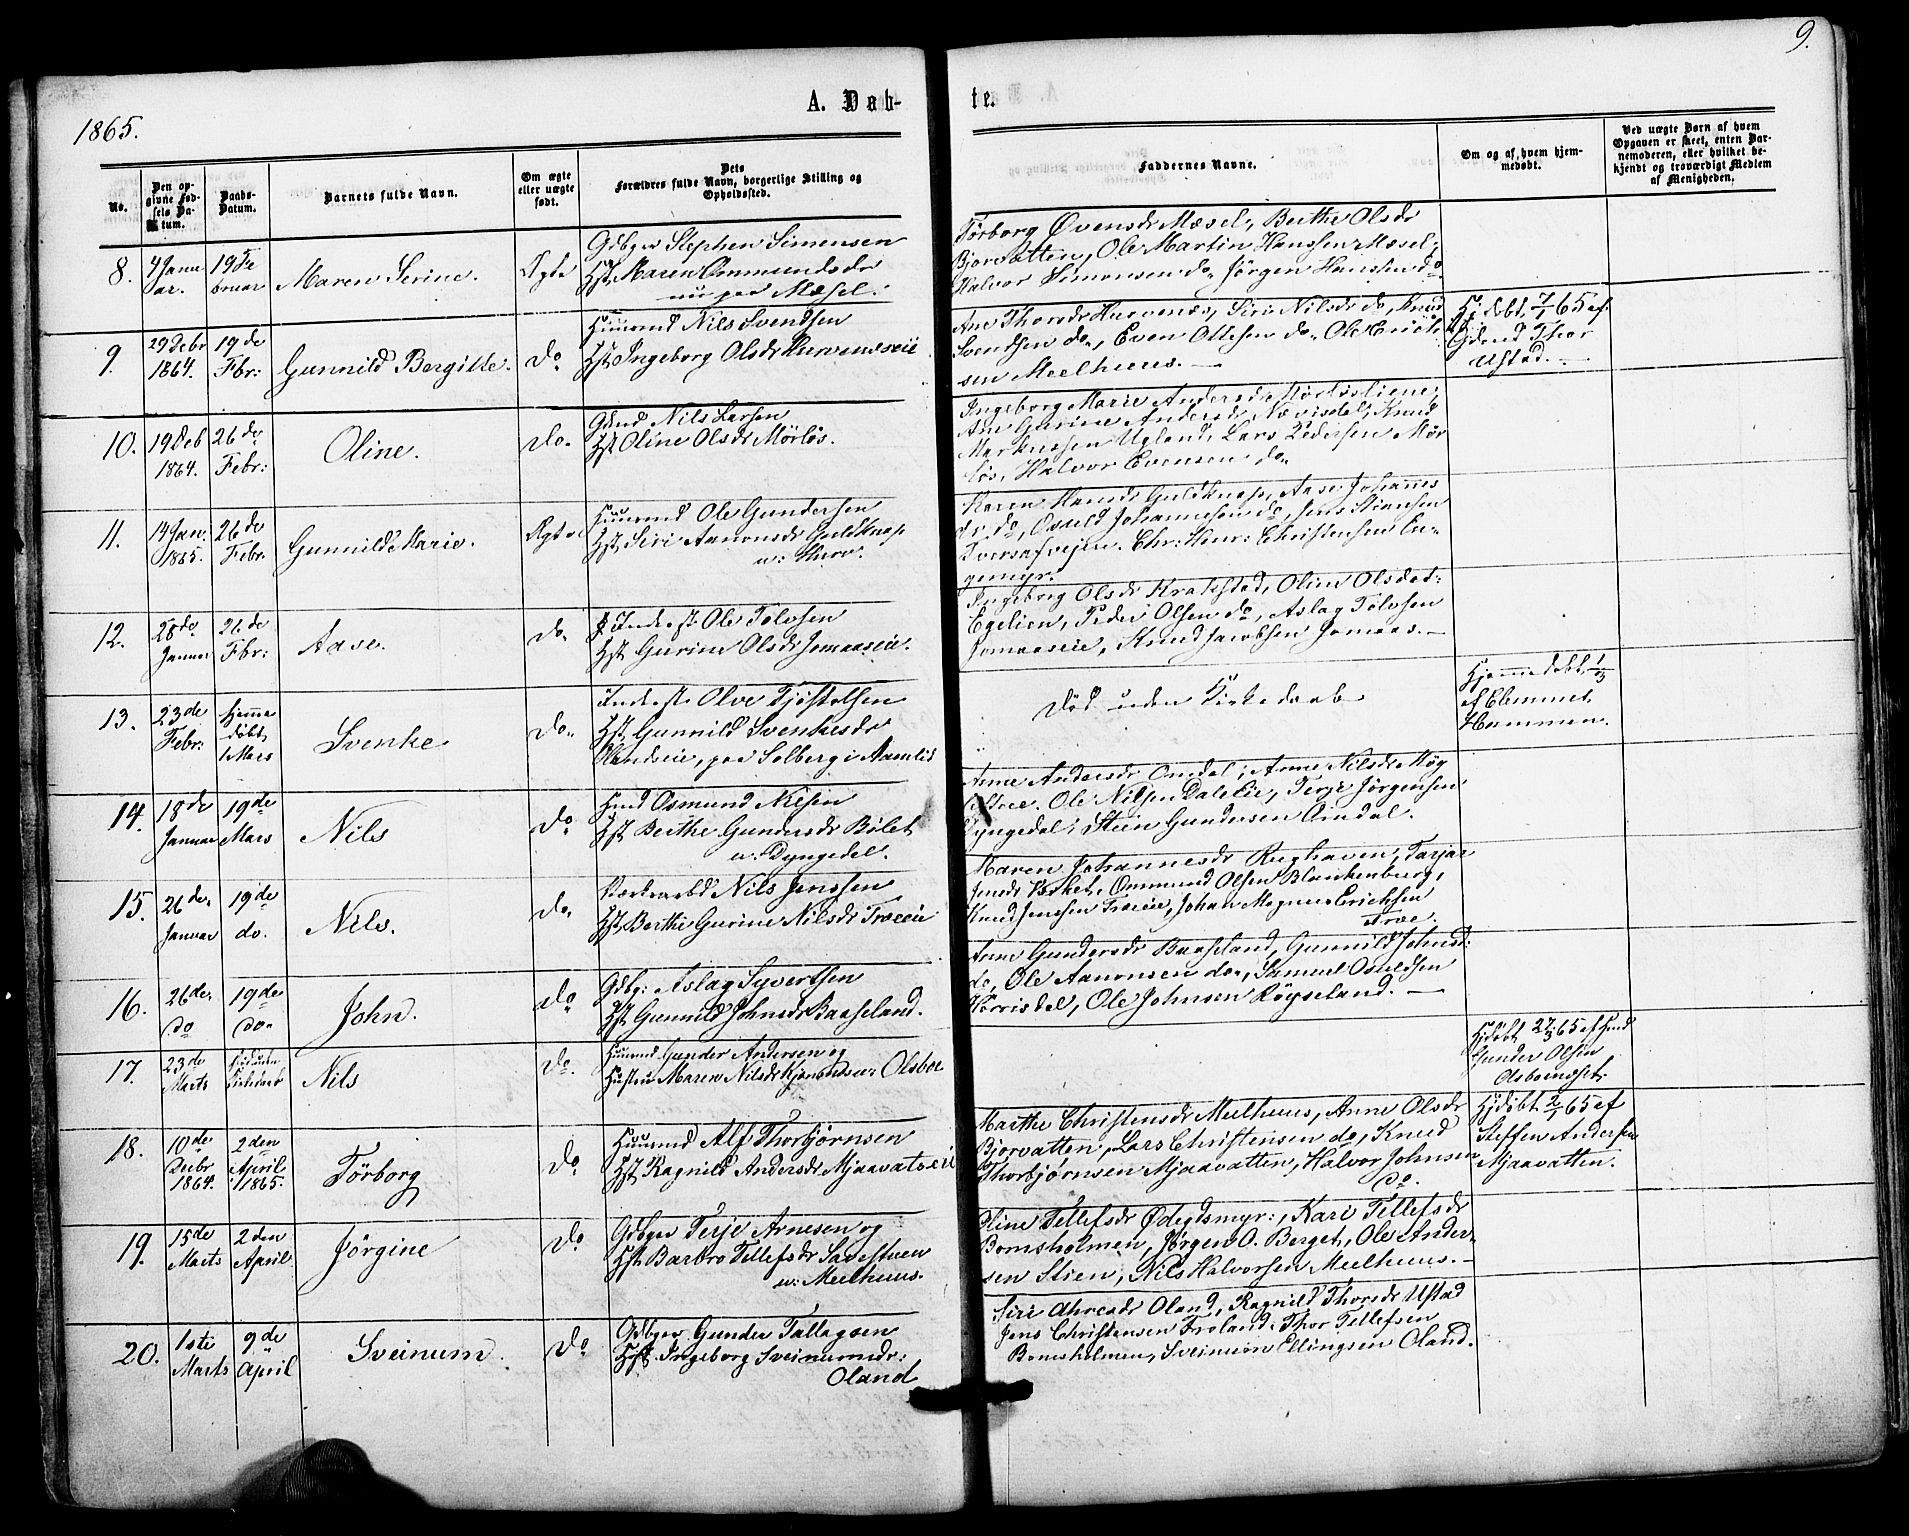 9.
A. Døb-
te.
1865.
No.
Den op-
givne Fød-
sels Da-
tum.
Daabs-
Datum.
Barnets fulde Navn.
Om ægte
eller uægte
født.
Dets
Forældres fulde Navn, borgerlige Stilling og
Opholdssted.
Faddernes Navne.
Om og af hvem hjem-
medøbt.
Ved uægte Børn af hvem
Opgaven er skeet, enten Bar-
nemoderen, eller hvilket be-
kjendt og troværdigt Medlem
af Menigheden.
8.
4 Janu
ar.
19 Fe
bruar
Maren Serine.
Ægte
Gdbgr Stephen Simensen
Hst Maren Ommundsdr
nu paa Mæsel.
Tørborg Øvensdr Mæsel, Berthe Olsdr
Bjorvatten, Ole Martin Hanssen Mæsel,
Halvor Simonsen do Jørgen Hanssen do
9.
29 Debr
1864.
19 de
Fbr:
Gunnild Bergitte.
Do
Huusmd Nils Svendsen
Hst Ingeborg Olsdr Hurvenæseie
Ane Thorsdr Hurvenæs, Siri Nilsdr do, Knud
Svendsen do, Even Ottesen do Ole Erick
sen Meelhuus.
Hjdøbt 7/1 65 af
Gdmd Thor
Ufstad.
10.
19 Deb
1864.
26 de
Febr:
Oline.
Do
Gdmd Nils Larsen
Hst Oline Olsdr Mørløs.
Ingeborg Marie Andersdr Mørløsliene,
Ane Gurine Andersdr Nævisdal, Knud
Markussen Ugland, Lars Pedersen Mør
løs, Halvor Evensen do
11.
14 Jan.
1865.
26 de
Febr
Gunnild Marie.
Ægte
Huusmd Ole Gundersen
Hst Siri Aanonsdr Guldknap
u: Hurv.
Karen Hansdr Guldknap, Aase Johannes
dr do, Osuld Johannesen do, Jens Stiansen
Tversafveien. Chr: Henr: Christensen En-
gemyr.
12.
28 de
Januar
26 de
Fbr:
Aase.
Do
Inderst Ole Tolvsen
Hst Gurine Olsdr Jomaaseie.
Ingeborg Olsdr Krakstad, Oline Olsdat:
Egelien, Peder Olsen do, Aslag Tolvsen
Jomaaseie, Knud Jacobsen Jomaas.
13.
23 de
Febr:
Hjemme
døbt
1 Mars
Svenke
Do
Inderst Olve Tjøstolfsen
Hst Gunnild Svenkesdr
Olandseie, paa Solberg i Aamlid
Død uden Kirkedaab
Hjemmedøbt 1/3
af Clemmet
Hammen.
14.
18 de
Januar
19 de
Mars
Nils
Do
Hmd Osmund Nilsen
Hst Berthe Gundersdr Bølet
u: Dyngedal.
Anne Andersdr Omdal, Anne Nilsdr Høg
Ole Nilsen Daleeie, Terje Jørgensen
Dyngedal, Stein Gundersen Omdal.
15.
26 de
Januar
19 de
do.
Nils.
Do
Nils Jenssen
Hst Berthe Gurine Nilsdr Træeie
Maren Johannesdr Rughaven, Tarjer
Jensdr Værket, Ommund Olsen Blankenberg,
Knud Jenssen Træeie, Johan Magnus Erichsen
Træe.
16.
26 de
do
19 de
do
John.
Do
Gdbg: Aslag Syvertsen
Hst Gunnild Johnsdr Baaseland.
Anne Gundersdr Baaseland, Gunnild Johnsd:
do, Ole Aanonsen do, Samuel Osuldsen
Hørrisdal, Ole Johnsen Røyseland.
17.
23 de
Marts
Nils
Do.
Huusmd Gunder Andersen og
Hustru Maren Nilsdr u: Olsboe
Hjdøbt 27/3 65 af Hmd
Gunder Olsen
18.
10 de
Debr
1864.
2 den
April
1865.
Tørborg
Do
Huusmd Alf Thorbjørnsen
Hst Ragnild Andersdr Mjaavatseie
Marthe Christensdr Meelhuus, Anne Olsdr
Bjorvatten, Lars Christensen do, Knud
Thorbjørnsen Mjaavatten, Halvor Johnsen
do.
Hjdøbt 2/1 65 af
Steffen Andersen
Mjaavatten.
19.
15 de
Marts
2 den
April
Jørgine
Do
Gdbgr Terje Arnesen og
Hst Barbro Tellefsdr Savstuen
u: Meelhuus.
Oline Tellefsdr Ødegdsmyr:, Kari Tellefsdr
Bomsholmen, Jørgen O. Berget, Ole Ander-
sen Stien, Nils Halvorsen Meelhuus.
20.
1ste
Marts
9 de
April
Sveinum.
Do
Gdbgr Gunder Tallagsen
Hst Ingeborg Sveinumsdr:
Oland
Siri Oland, Ragnild Thorsdr Ufstad
Jens Christensen Froland, Thor Tellefsen
Bomsholmen, Sveinum Ellingsen Oland.